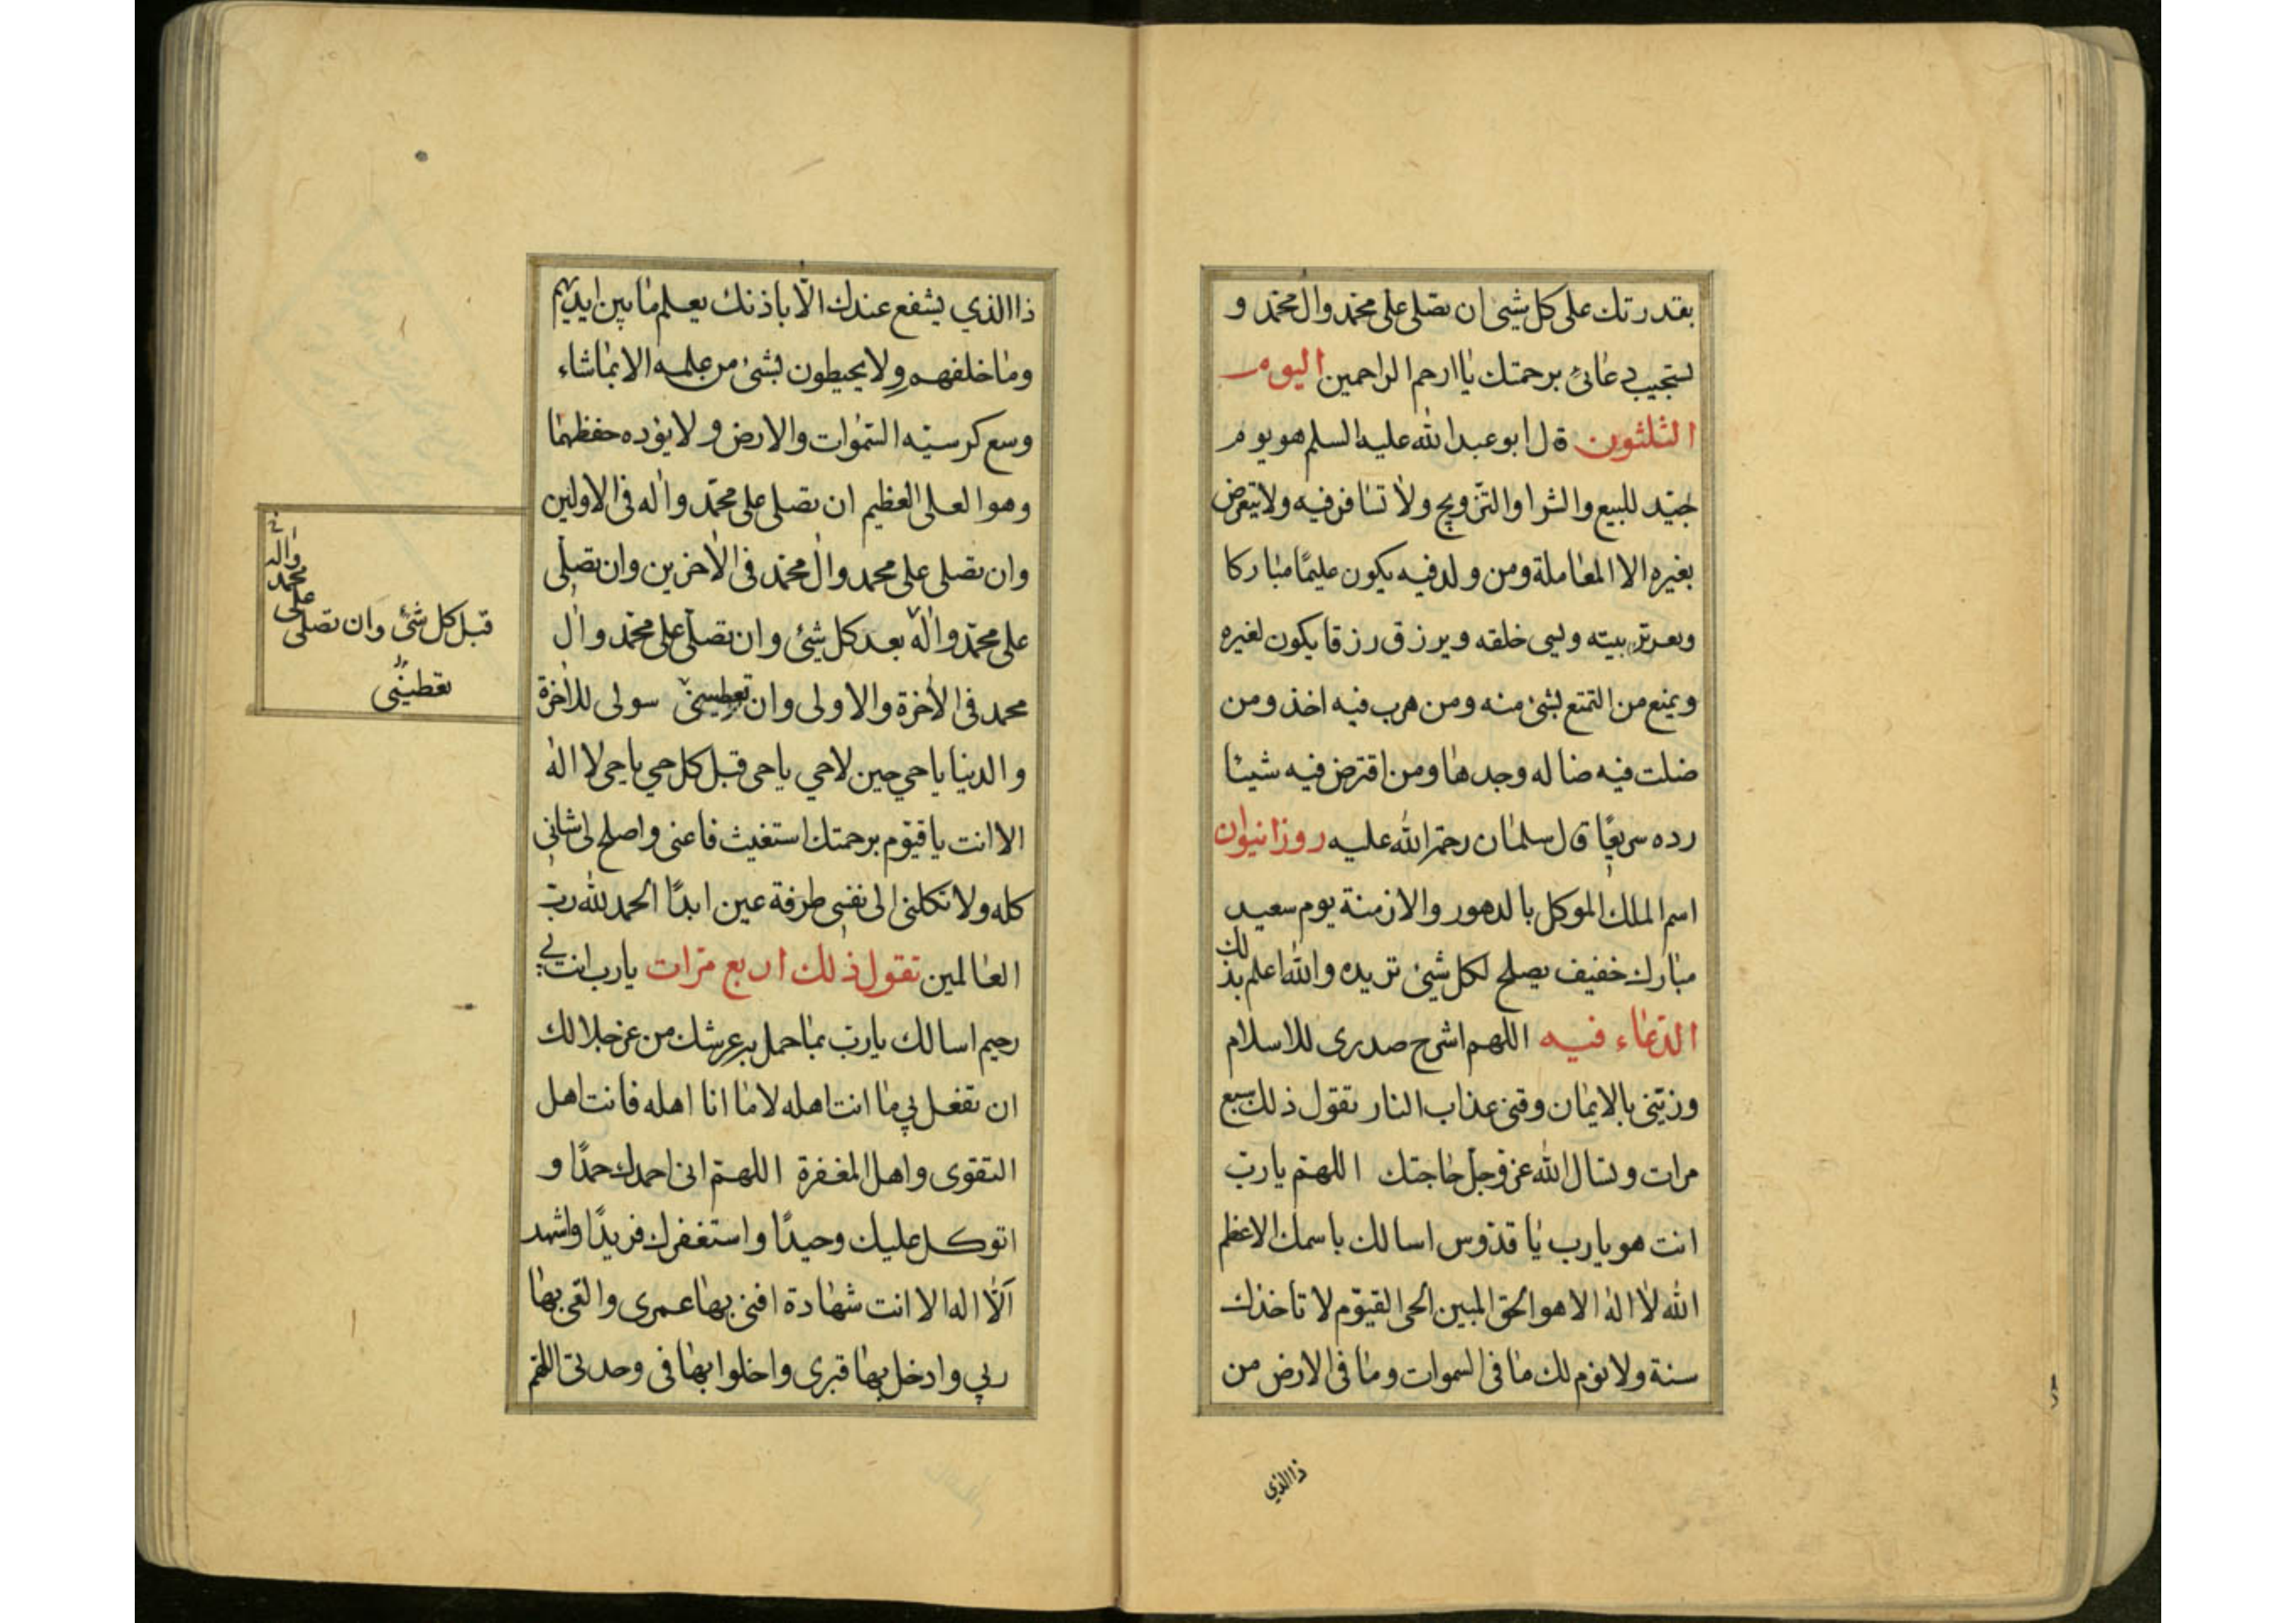 بقدرتك على كل شیئ ان تصلى على محمّد وال محمّد و
تستجيب دعائى برحمتك يا ارحم الراحمين اليوم
الثلثون قال ابو عبد الله عليه السلم هو يوم
جيّد للبيع والشرا والتّزويج ولا تسافر فيه ولا تتعرض
بغيره الا المعاملة ومن ولد فيه يكون عليمًا مباركا
ويعسر تربيته ويسى خلقه ويرزق رزقا يكون لغيره
ويمنع من التمتع بشئ منه ومن هرب فيه اخذ ومن
ضلت فيه ضاله وجدها ومن اقترض فيه شيئا
رده سريعًا قال سلمان رحمة الله عليه روز انيران
اسم الملك الموكل بالدهور والازمنة يوم سعيد
مبارك خفيف يصلح لكل شیئ تريده والله اعلم بذلك
الدّعاء فيه اللهم اشرح صدرى للاسلام
وزيّنى بالايمان وقنى عذاب النار تقول ذلك سبع
مرات وتسال الله عز وجل حاجتك اللهمّ يا ربّ
انت هو يا رب يا قدّوس اسالك باسمك الاعظم
الله لا اله الا هو الحق المبين الحى القيّوم لا تاخذك
سنة ولا نوم لك ما فى السموات وما فى الارض من
ذاالذي
ذاالذي يشفع عندك الّا باذنك يعلم ما بين ايديهم
وما خلفهم ولا يحيطون بشئ من علمه الا بما شاء
وسع كرسيّه السّموات والارض ولا يؤده حفظهما
وهو العلى العظيم ان تصلى على محمّد واله فى الاولين
وان تصلى على محمد وال محمّد فى الاخرين وان تصلّى
على محمّد واله بعد كل شیئ وان تصلّى على محمّد وال
محمد فى الاخرة والاولى وان تعطينى سولى للاخرة
والدنيا يا حي حين لا حي يا حى قبل كل حي يا حى لا اله
الا انت يا قيّوم برحمتك استغيث فاعنى واصلح لى شانى
كله ولا تكلنى الى نفسى طرفة عين ابدًا الحمد لله ربّ
العالمين تقول ذلك اربع مرّات يا رب انت بي
رحيم اسالك يا ربّ بما حمل عرشك من عز جلالك
ان تفعل بي ما انت اهله لا ما انا اهله فانت اهل
التقوى واهل المغفرة اللهمّ انى احمدك حمدًا و
اتوكل عليك وحيدًا واستغفرك فريدًا واشهد
الّا اله الا انت شهادة افنى بها عمرى والقى بها
ربي وادخل بها قبرى واخلوا بها فى وحدتى اللهم
قبل كل شئ وان تصلى على محمد واله
تعطينى